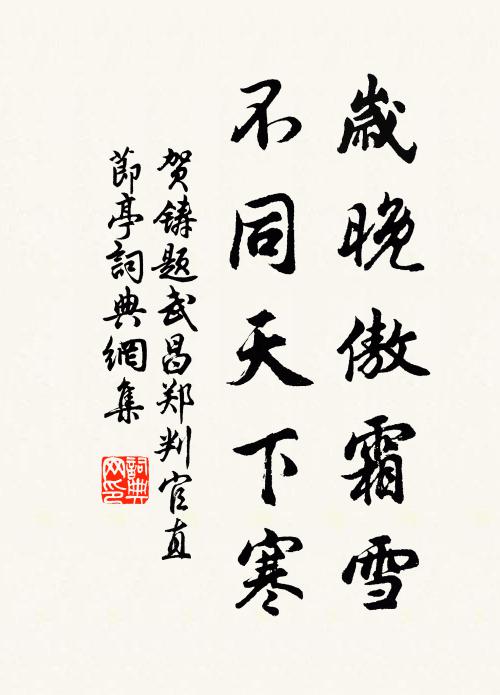 歲晚傲霜雪
不同天下寒
贺鑄題武昌郑判官直
節亭詞典網集
詞典
网印